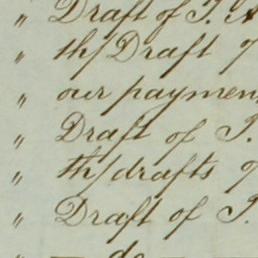 " Draft of T. A
" th/ Draft o
" our paymen
" Draft of T.
" th/ drafts o
" Draft of T.
" do